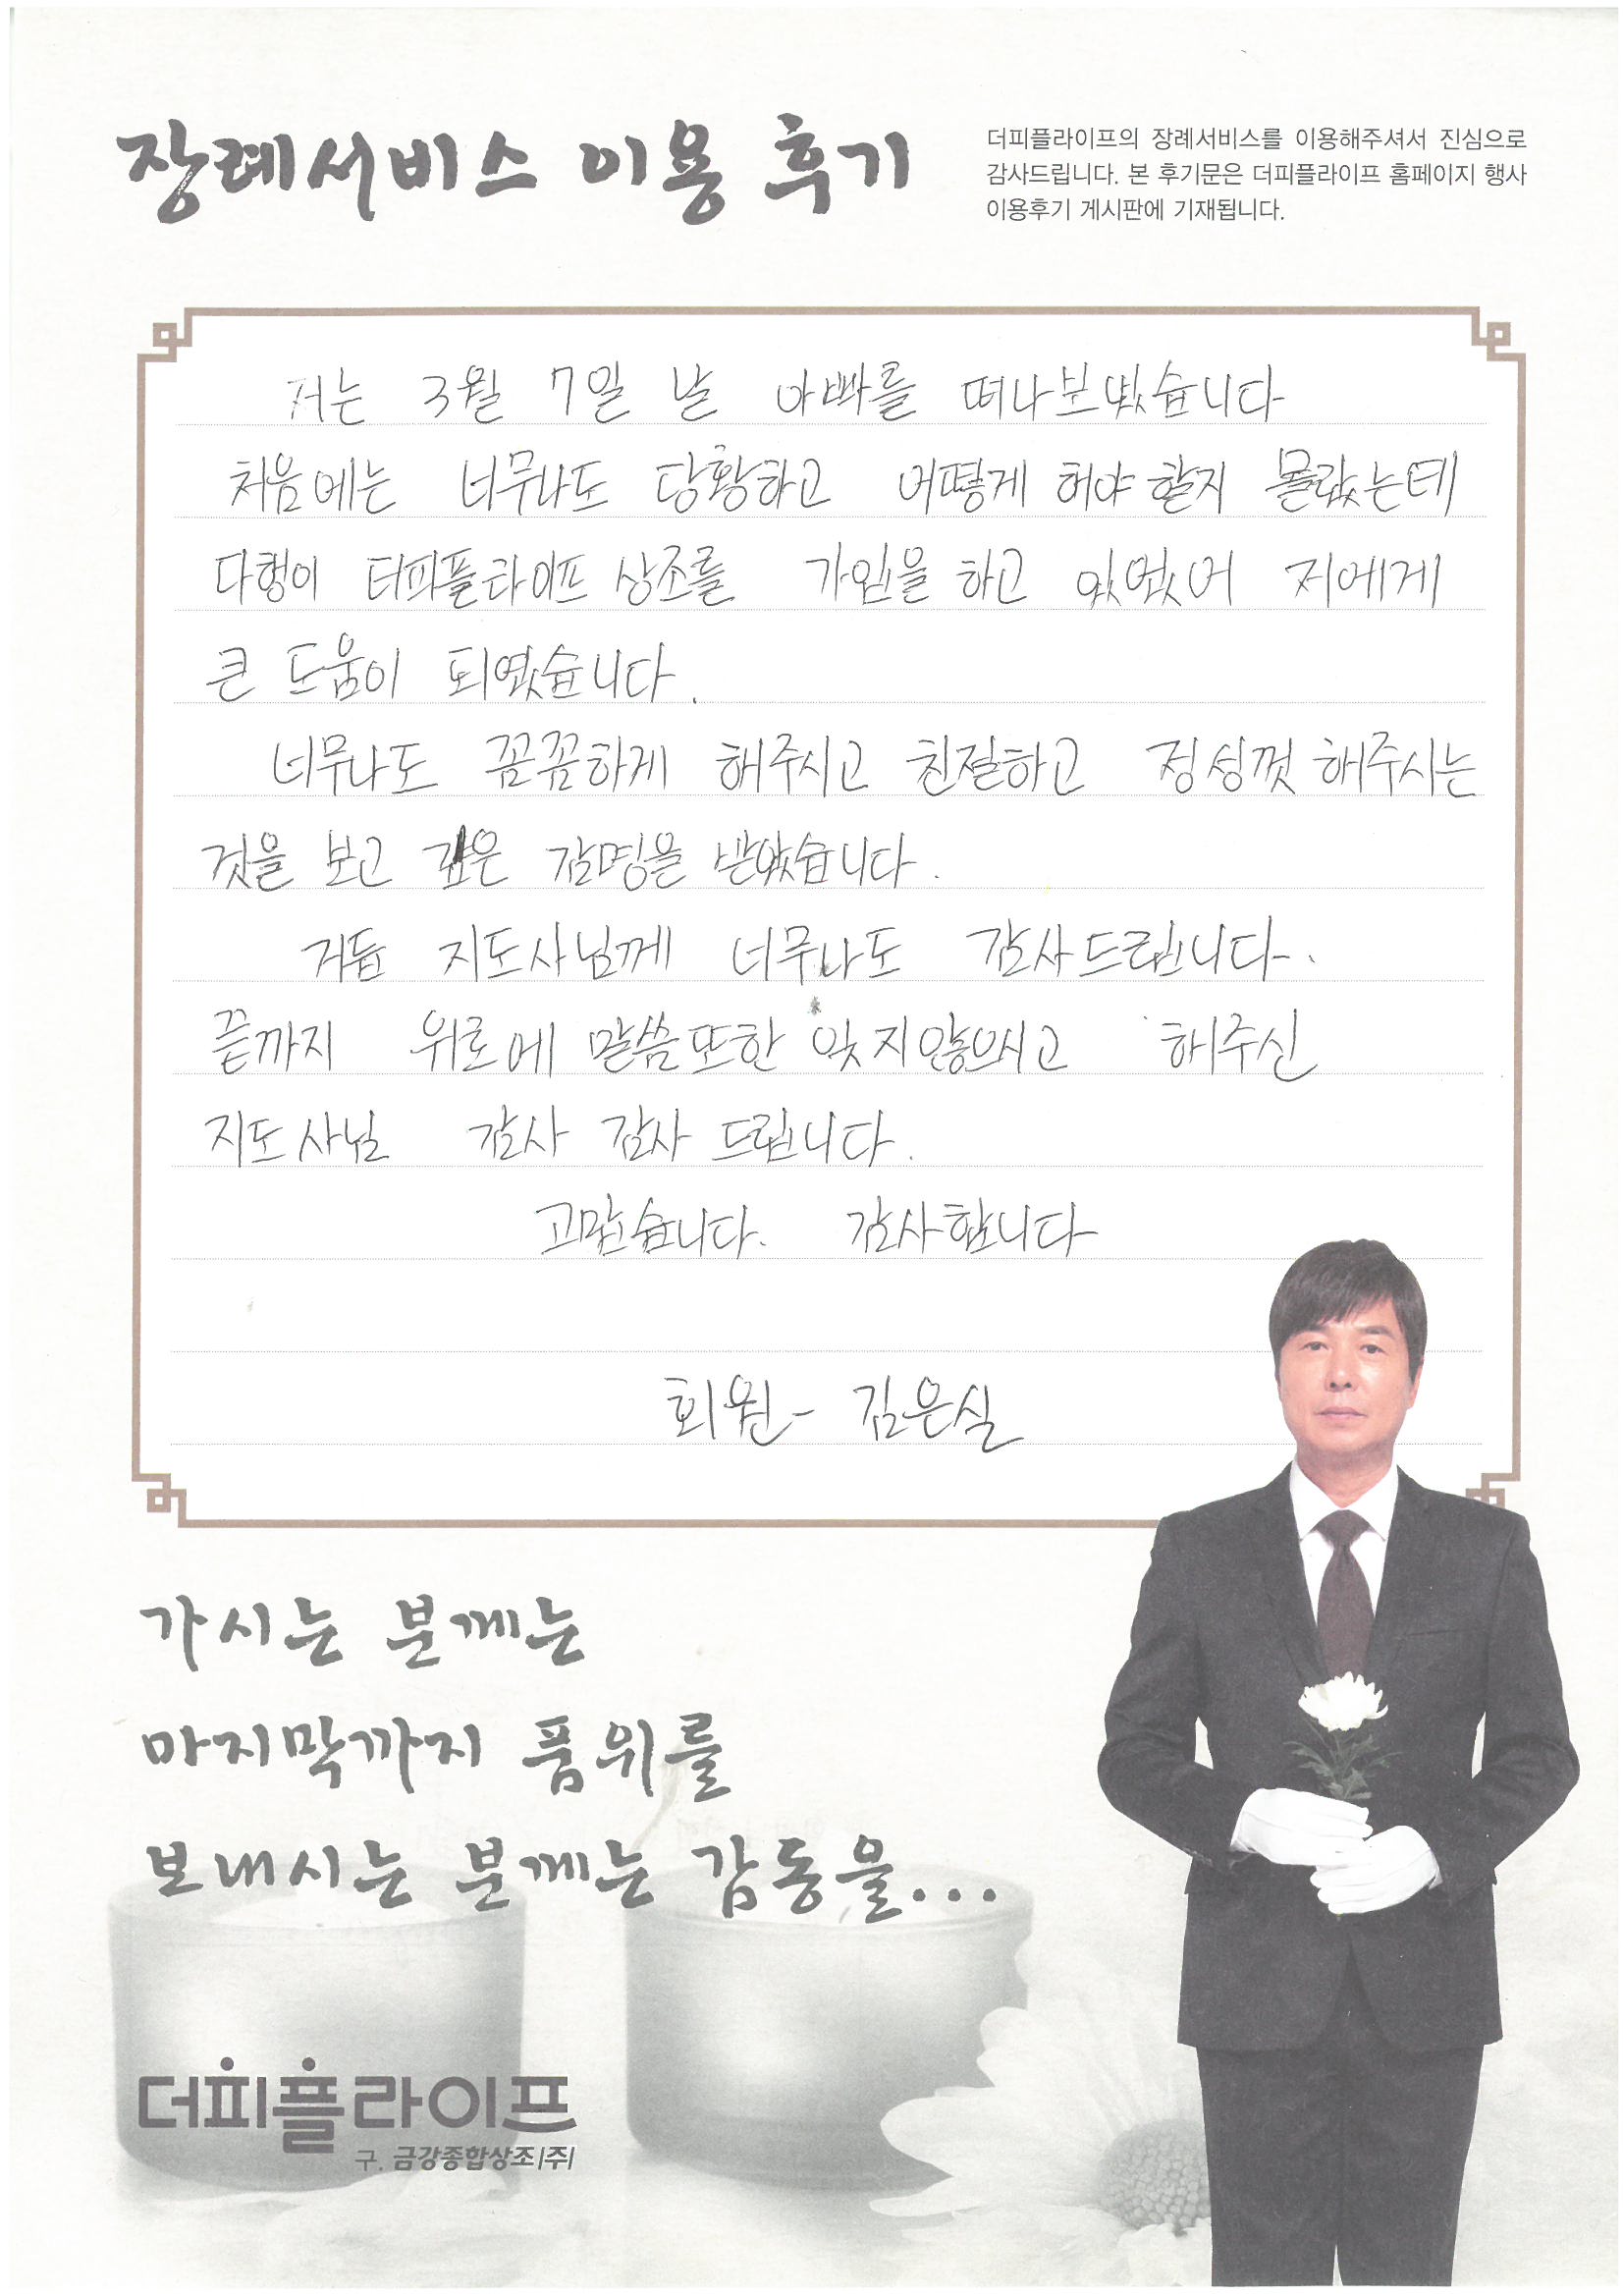 장례서비스 이용 후기
더피플라이프의 장례서비스를 이용해주셔서 진심으로
감사드립니다. 본 후기문은 더피플라이프 홈페이지 행사
이용후기 게시판에 기재됩니다.
저는 3월 7일 날 아빠를 떠나보냈습니다
처음에는 너무나도 당황하고 어떻게 해야 할지 몰랐는데
다행이 더피플라이프 상조를 가입을 하고 있었어 저에게
큰 도움이 되였습니다.
너무나도 꼼꼼하게 해주시고 친절하고 정성껏 해주시는
것을 보고 깊은 감명을 받았습니다.
거듭 지도사님께 너무나도 감사드립니다.
끝까지 위로에 말씀 또한 잊지않으시고 해주신
지도사님 감사 감사 드립니다.
고맙습니다. 감사합니다
회원- 김은실
가시는 분께는
마지막까지 품위를
보내시는 분께는 감동을...
더피플라이프
구. 금강종합상조|주|